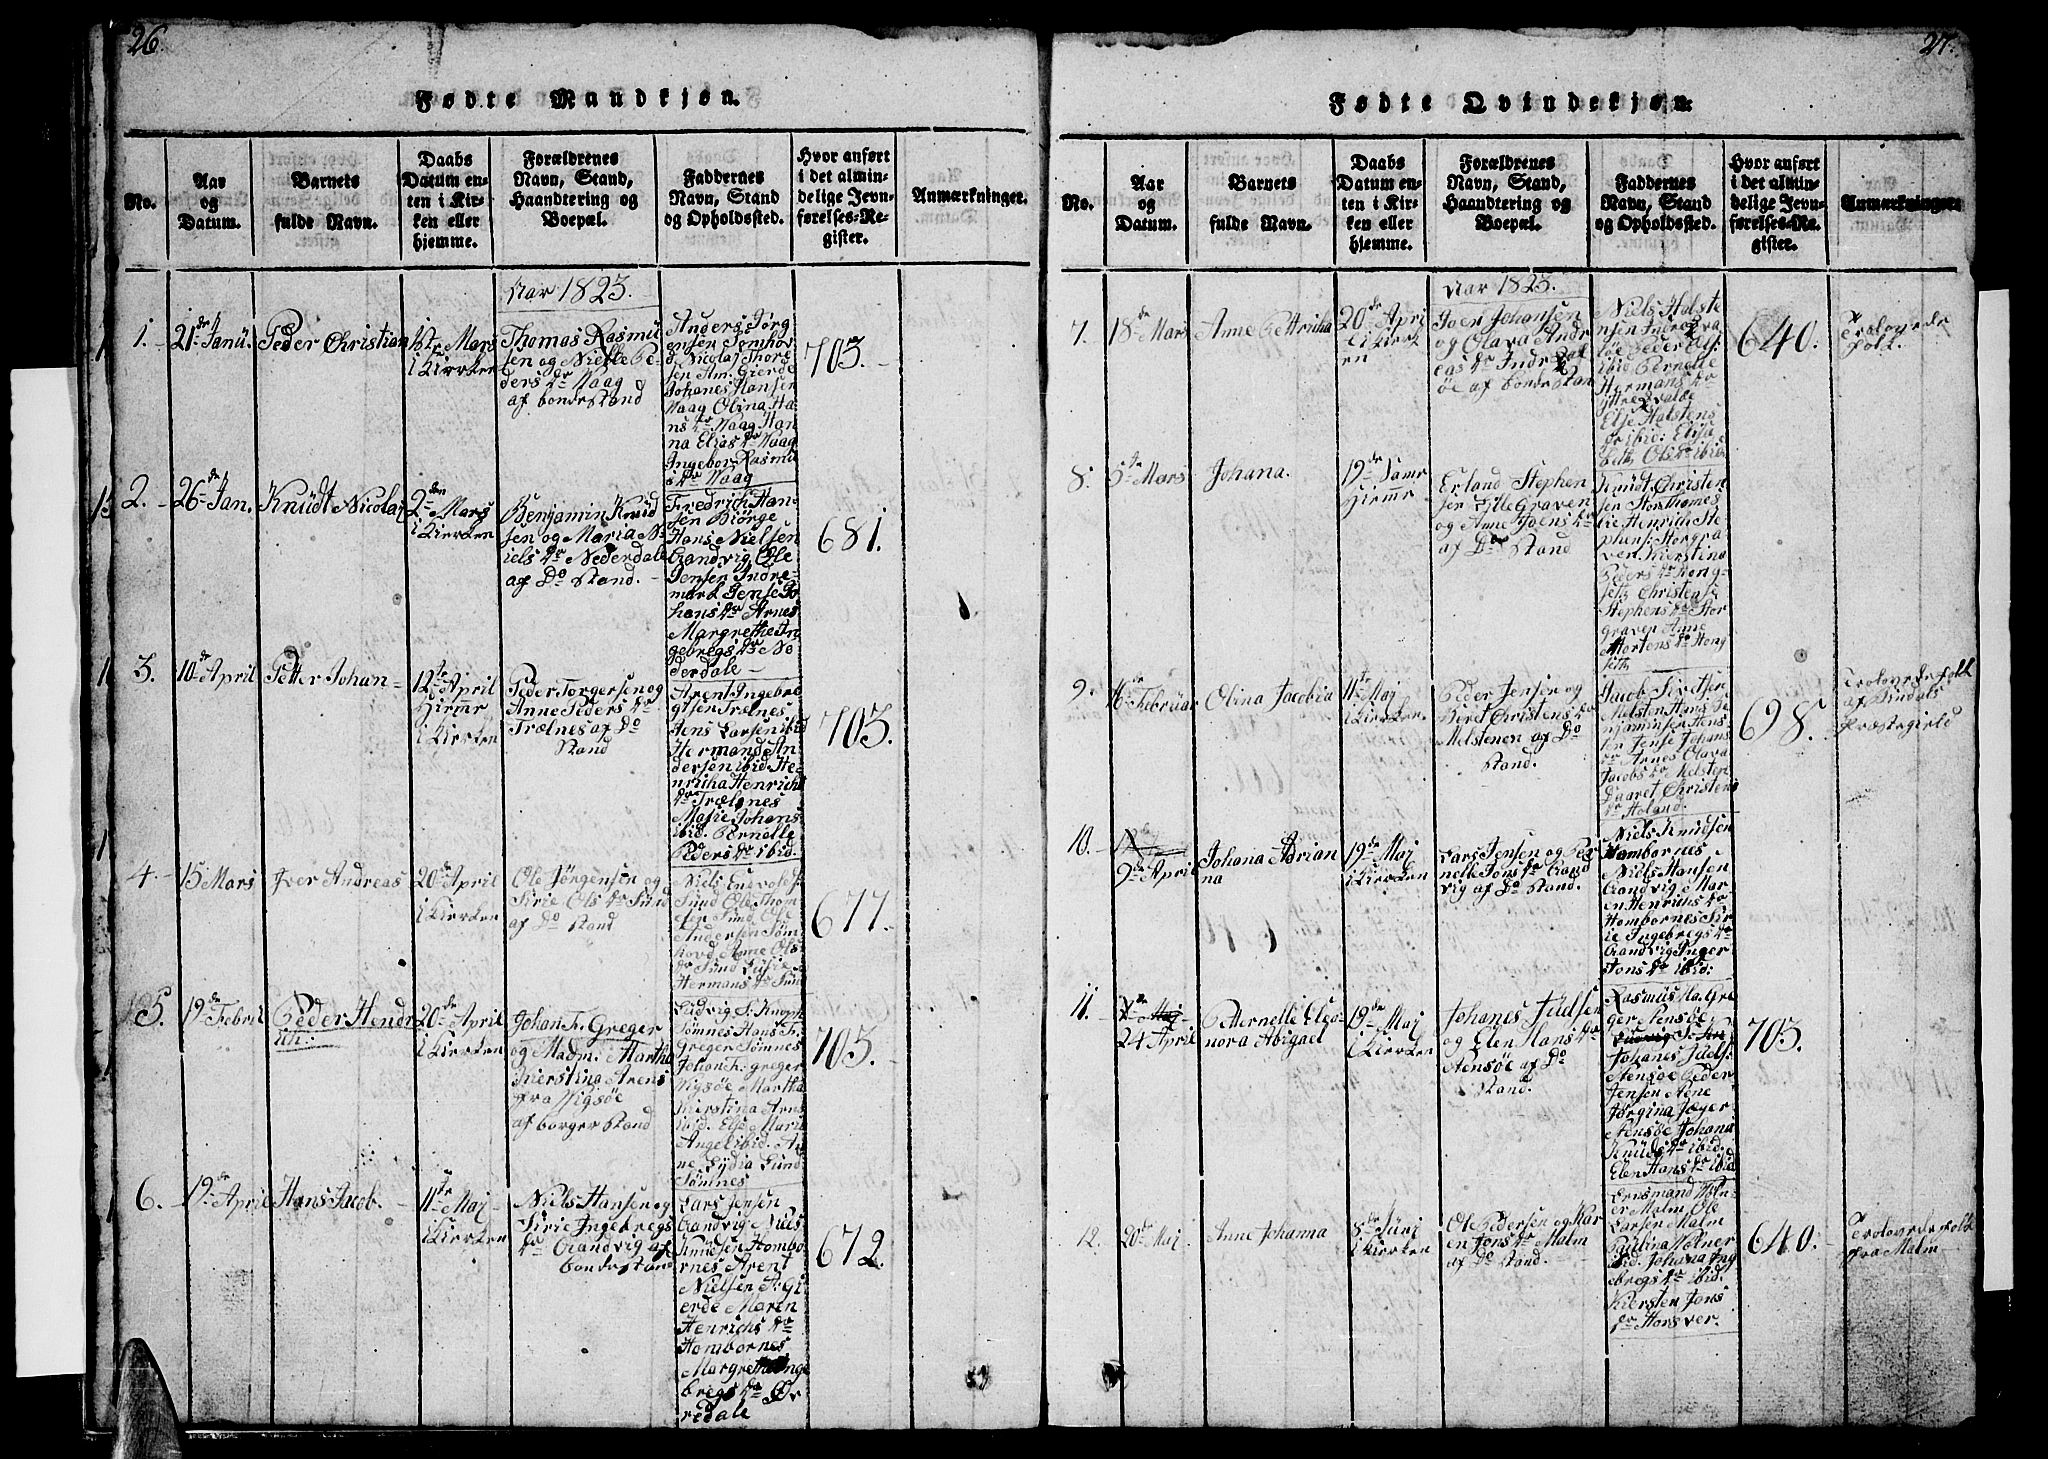 26.
Fødte Mandkjøn.
No.
Aar
og
Datum.
Barnets
fulde Navn.
Daabs
Datum en-
ten i Kir-
ken eller
hjemme.
Forældrenes
Navn, Stand,
Haandtering og
Boepæl.
Faddernes
Navn, Stand
og Opholdssted.
Hvor anført
i det almin-
delige Jevn-
førelses-Re-
gister.
Anmærkninger.
Aar 1823.
1.
21de Janu.
Peder Christian
1ste Mars
i Kirken
Thomas Rasmu
sen og Nielle Pe-
ders dr Waag
af bondestand
Anders Jørg
ensen Sømhov
d Nicolaj Thors
sen Am: Gierde
Johanes Hansen
Waag Olina Ha-
ns dr Waag Han
na Elias dr Waag
Ingebor Rasmu
s dr Waag
703.
2.
26de Jan.
Knudt Nicolaj
2den Mars
i Kirken
Benjamin Knud
sen og Maria N-
iels dr Nederdale
af Do Stand.
Fredrich Han-
sen Biørge
Hans Nielsen
Grandvig Ole
Jensen Indre-
mark Jense Jo
hans dr Arnes
Margrethe In
gebregs dr Ne
derdale
681.
3.
10de April
Petter Johan
12te April
Hiemr
i Kirken
Peder Torgersen og
Anne Peders dr
Trælnes af Do
Stand
Arent Ingebre
gtsen Trælnes
Jens Larsen ibid
Hermand An
dersen ibid. He-
nricha Henrichs
dr Trælnes
Masie Johans
ibid. Pernelle
Peders dr ibid.
703.
4.
15 Mars
Iver Andreas
20de April
i Kirken
Ole Jørgensen og
Sirie Ols dr Sund
af Do Stand
Niels Endvolds:
Sund Ole Thom
esen Sund Ole
Andersen Søm
hovd Anne Ols
dr Sund Lusie
Hermans dr Sund
677.
5.
19de Febru
Peder Hendr
ich:
20de April
i Kirken
Johan F. Greger
og Madm. Martha
Kierstina Arens
fra Vigsøe
af borger Stand
Ludvig S. Knoph
Sømnes Hans F.
Greger Sømnes
Johan F. greger
Vigsøe Martha
Kierstina Arns
ibid. Else Maria
Angel ibid. An
ne Lydia Lund
Sømnes
703.
6.
19de April
Hans Jacob.
11te Maj
i Kirken
Niels Hansen og
Sirie Ingebregs
dr Grandvig af
bondestand
Lars Jensen
Grandvig Niels
Knudsen Hombo
rnes Arent
Nielsen A: Gi
erde Maren
Henrichs dr
Hombornes
Margrethe Inge
bregs dr Øv
redale
672.
27.
Fødte Qvindekjøn.
No.
Aar
og
Datum.
Barnets
fulde Navn.
Daabs
Datum en-
ten i Kir-
ken eller
hjemme.
Forældrenes
Navn, Stand,
Haandtering og
Boepæl.
Faddernes
Navn, Stand
og Opholdssted.
Hvor anført
i det almin-
delige Jevn-
førelses-Re-
gister.
Anmærkninger.
Aar 1823.
7.
18de Mars
Anne Pettricha
20de Apri
i Kirk
en
Joen Johansen
og Olava Andr
eas dr Indreqval
øe af bondestan
Niels Halste
nsen Indreqva
løe Peder Ols:
ibid Pernelle
Hermans dr
yttreqvaløe
Else Halstens
dr ibid: Elisa
beth Ols dr ibid
640.
Trolovede
folk.
8.
5te Mars
Johana.
19de Samr
Hiemr
Erland Stephen
sen LilleGraven
og Anne Joens dr
af Do Stand
Knudt Christen
sen StorThomes
lie Henrich Ste
phens: Storgra
ven Kierstina
Peders dr Hong-
seth Christens:
Stephens dr Stor
graven Anne
Mortens dr Hong
seth
9.
16de Februar
Olina Jacobia
11te Maj
i Kirken
Peder Jensen og
Berit Christens dr
Melstenen af Do
Stand.
Jacob Sivertsen
Melsten Hans Be
njaminsen Hans
sen Jense Johans
dr Arnes Olava
Jacobs dr Melsten
Daaret Christens
dr Holand.
698.
Trolovede folk
af Bindals
Præstegield
10.
9de April
Johana Adrian
na
19de Maj
i Kirken
Lars Jensen og Per
nelle Jons dr Grand
vig af Do Stand.
Niels Knudsen
Hombornes
Niels Hansen
Grandvig Mar
en Henrichs dr
Hombornes Sir
ie Ingebregs dr
Grandvig Inger
Jons dr ibid:
11.
24 April
Petternelle Eleo
nora Abigael
19de Maj
i Kirken
Johanes Judsen
og Elen Hans dr
Aensøe af Do
Stand.
Rasmus Ma. Gre
ger Aensøe
Johanes Juds:
Aensøe Peder
Jensen Aene
Jørgina Jæger
Aensøe Johana
Knuds dr ibid:
Elen Hans dr ibid
703.
12.
20de Maj
Anne Johanna
8de Juni
i Kirken
Ole Pedersen og Kar
en Jons dr Malm
af Do Stand.
Ernsmand Møln
er Malm Ole
Larsen Malm
Paulina Mølner
ibid. Johana Ing
ebregs dr ibid.
Kiersten Jons
dr Horsver.
640.
Trolovede folk
fra Malm